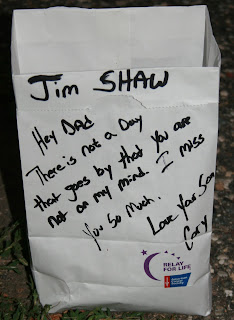 Jim SHAW
Hey Dad
There is not a Day
that goes by that you are
not on my mind. I miss
You So Much.
Love Your Son
Cory
RELAY
FOR LIFE